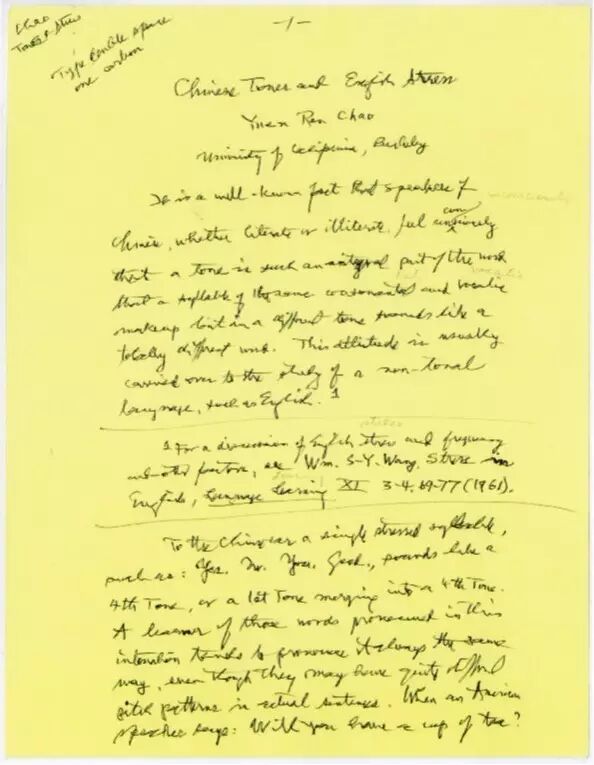 Chao
Tones & Stress
Type double space
one carbon
-1-
Chinese Tones and English Stress
Yuen Ren Chao
University of California, Berkeley
It is a well-known fact that speakers of
Chinese, whether literate or illiterate, feel consciously
that a tone is such an integral part of the word
that a syllable of the same consonantal and vocalic
makeup but in a different tone sounds like a
totally different word. This attitude is usually
carried over to the study of a non-tonal
language, such as English. 1
1 For a discussion of English stress and frequency
and other factors, see Wm. S-Y. Wang, Stress in
English, Language Learning XI 3-4, 69-77 (1961).
To the Chinese ear a single stressed syllable,
such as: Yes. No. You. Good., sounds like a
4th Tone, or a 1st Tone merging into a 4th Tone.
A learner of those words pronounced in this
intonation tends to pronounce it always the same
way, even though they may have quite different
pitch patterns in actual sentences. When an American
speaker says: Will you have a cup of tea?